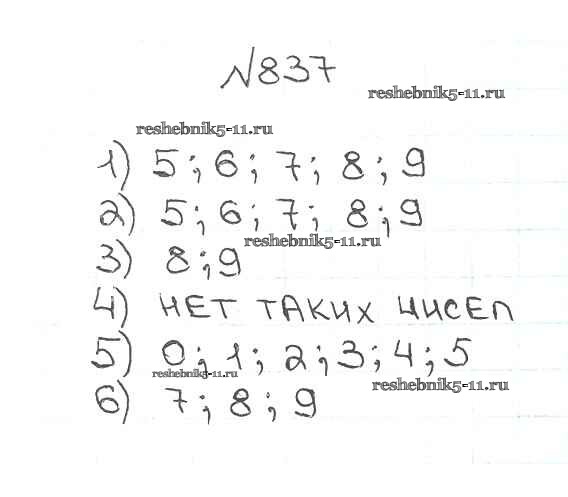 №837
reshebnik5-11.ru
reshebnik5-11.ru
1) 5; 6; 7; 8; 9
2) 5; 6; 7; 8; 9
reshebnik5-11.ru
3) 8; 9
4) НЕТ ТАКИХ ЧИСЕЛ
5) 0; 1; 2; 3; 4; 5
reshebnik5-11.ru
reshebnik5-11.ru
6) 7; 8; 9